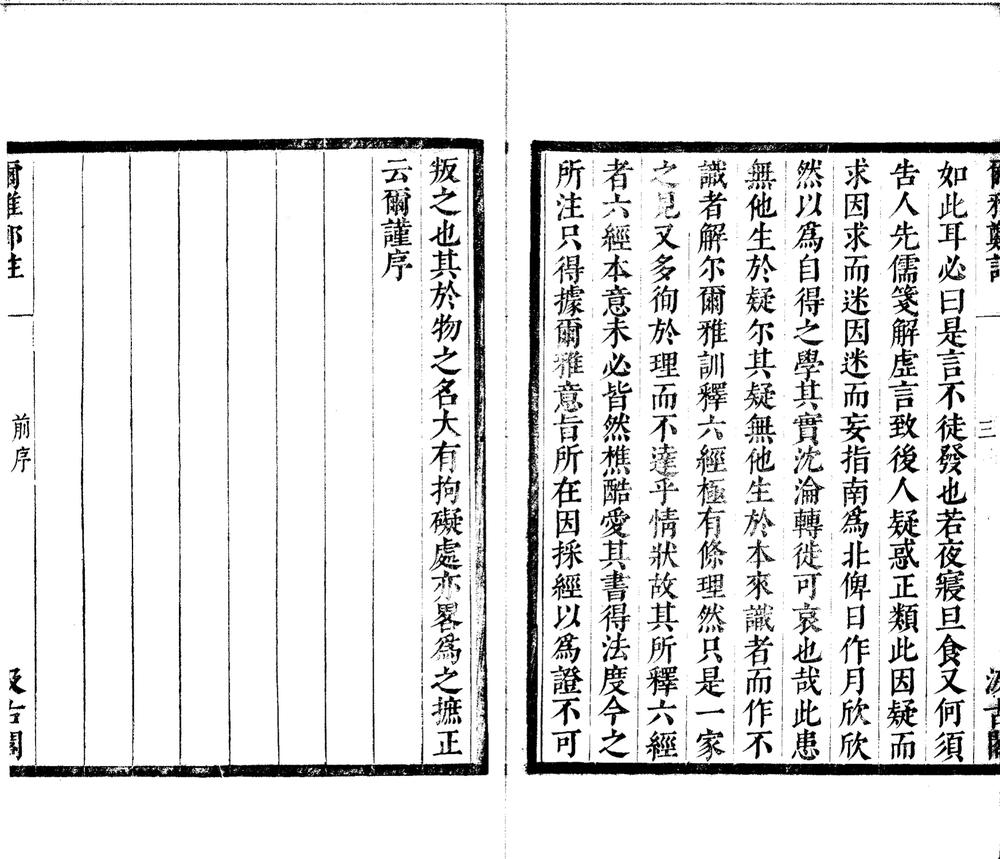 爾雅鄭註 三 汲古閣
如此耳必曰是言不徒發也若夜寢旦食又何須
告人先儒箋解虛言致後人疑惑正類此因疑而
求因求而迷因迷而妄指南爲北俾日作月欣欣
然以爲自得之學其實沈淪轉徙可哀也哉此患
無他生於疑尔其疑無他生於本來識者而作不
識者解尔爾雅訓釋六經極有條理然只是一家
之見又多徇於理而不達乎情狀故其所釋六經
者六經本意未必皆然樵酷愛其書得法度今之
所注只得據爾雅意旨所在因採經以爲證不可
叛之也其於物之名大有拘礙處亦畧爲之摭正
云爾謹序
爾雅鄭註 前序 汲古閣